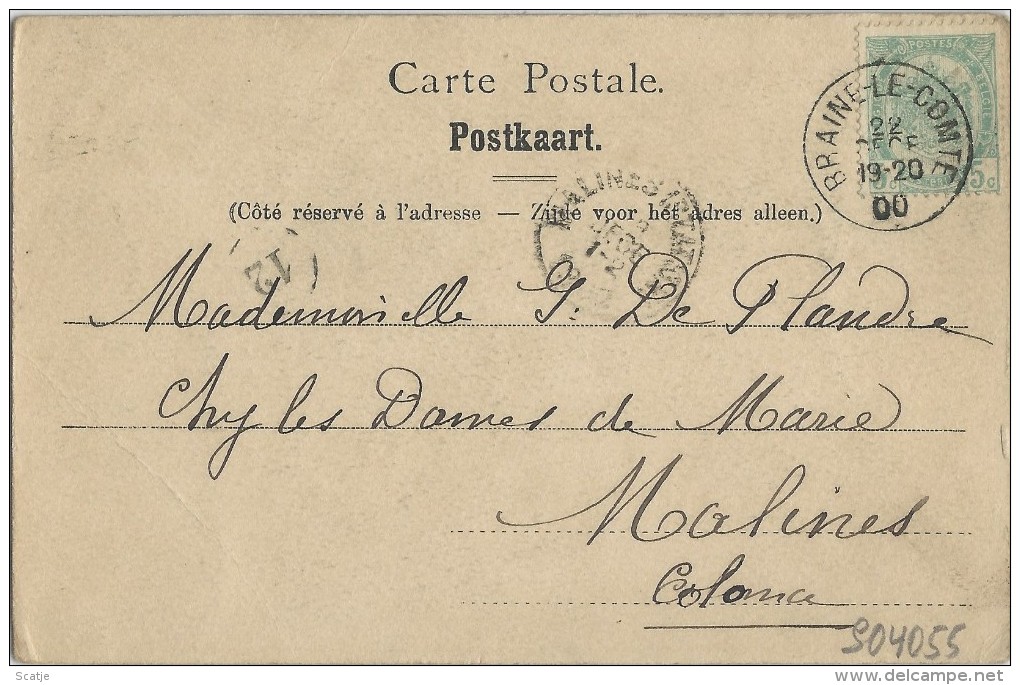 Carte Postale.
Postkaart.
(Côté réservé à l'adresse — Zijde voor het adres alleen.)
POSTES
5c
BRAINE-LE-COMTE
22
DECE
19-20
00
MALINES
DECE
12
Mademoiselle G. De Plandre
Chez les Dames de Marie
Malines
Coloma
S04055
Scatje
delcampe.net